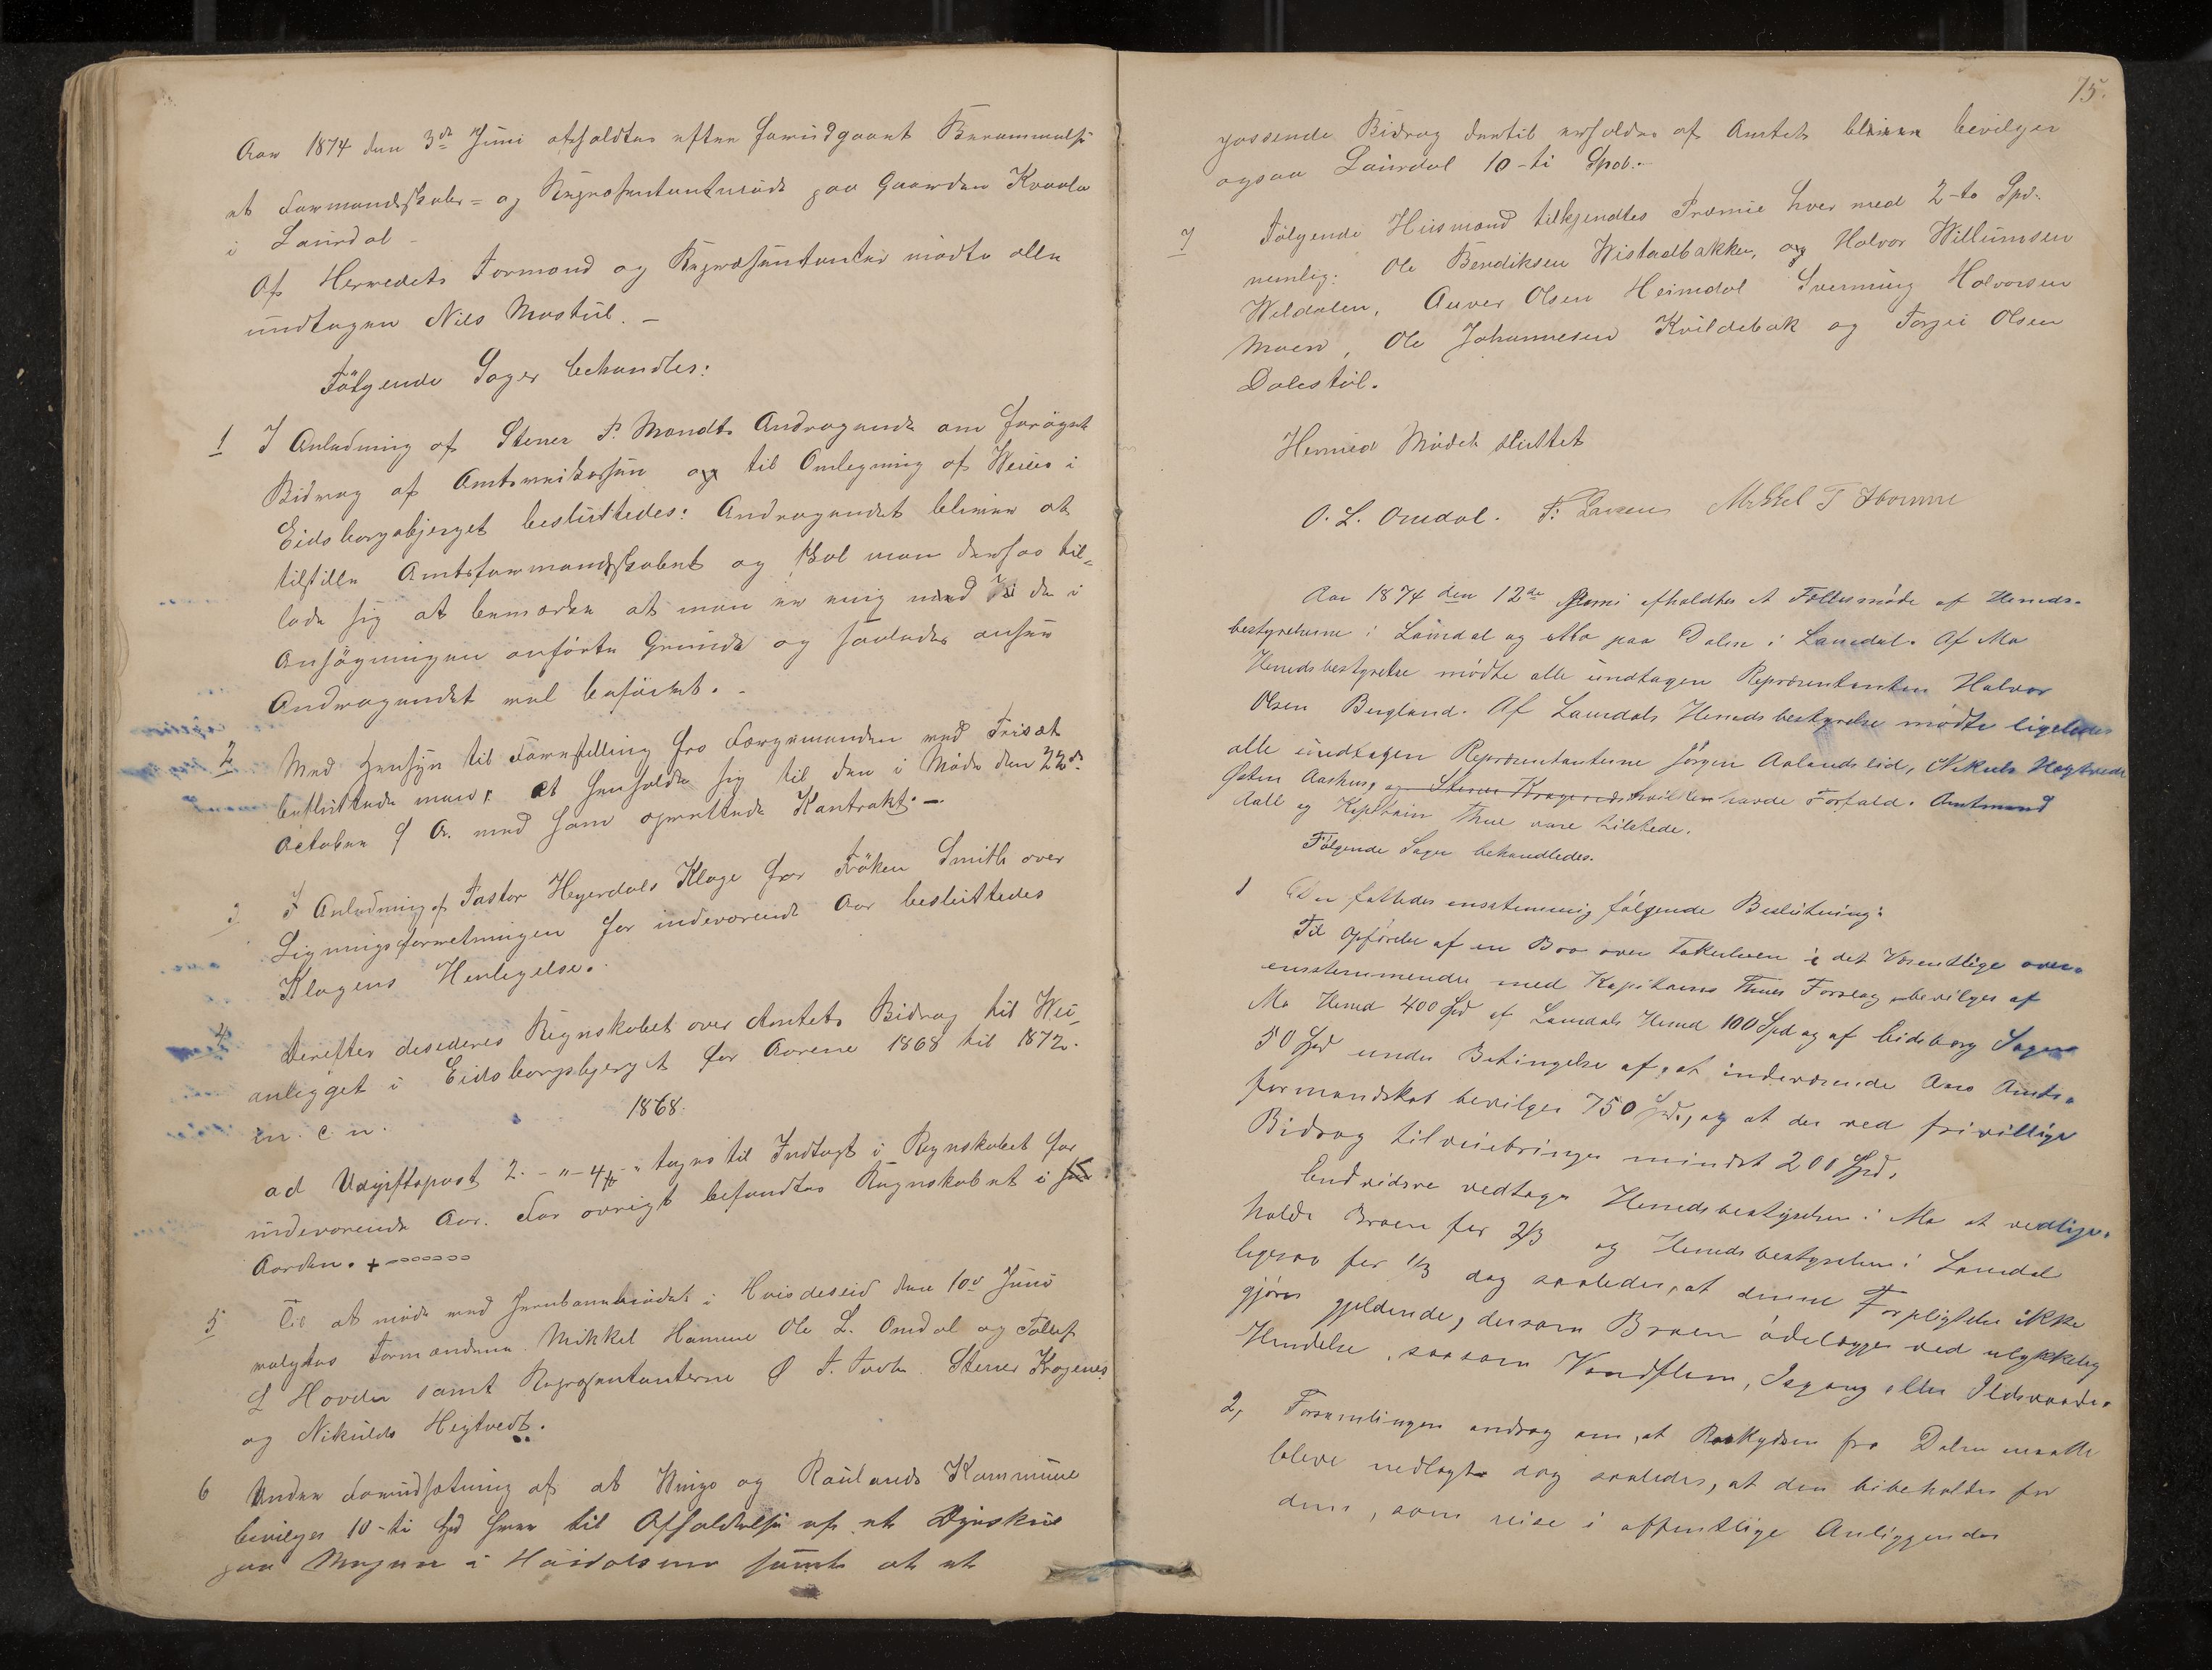 Aar 1874 den 3de Juni afholdtes efter forudgaaet Berammelse
et Formandskabs= og Repræsentantmøde paa Gaarden Kraale
i Laurdal -
Af Herredets Formænd og Repræsentanter mødte alle
undtagen Nils Mostul. -
Følgende Sager behandles:
1 I Anledning af Stener P. Mandts Andragende om forøget
Bidrag af Amtsveikassen og til Omlegning af Veien i
Eidsborgsbjerget besluttedes: Andragendet bliver at
tilstille Amtsformandskabet og skal man derhos til-
lade sig at bemærke at man er enig med de i
Ansøgningen anførte Grunde og saaledes ansees
Andragendet vel beføiet. -
2 Med Hensyn til Forestilling fra Forgemanden med Frisæt
besluttede man: at henholde sig til den i Møde den 22de
October f A. med ham oprettede Kontrakt. -
3 I Anledning af Pastor Heyerdals Klage for Frøken Smith over
Ligningsforretningen for indeværende Aar besluttedes
Klagens Henligelse.
4 Derefter desideres Regnskabet over Amtets Bidrag til Vei-
anlegget i Eidsborgsbjerget for Aarene 1868 til 1872.
m. c. n. 1868.
ad Udgiftspost 2. - " - 4 " tages til Indtægt i Regnskabet for
indeværende Aar. For øvrigt befandtes Regnskabet i
Aarden. +
5 Til at møde ved Jernbanemødet i Hvideseid den 10de Juni
valgtes Formændene Mikkel Homme Ole L. Omdal og Tollef
L Hovden samt Repræsentanterne Ø T. Stener Kragenes
og Nikulds Hegtvedt.
6 Under Forudsætning af at Vinje og Raulands Kommune
bevilger 10-ti Spd hver til Afholdelse af et Dyrskue
paa Mogen i Høidalsmo samt at et
75.
passende Bidrag dertil erholdes af Amtet bliver bevilget
ogsaa Laurdal 10-ti Spd. -
7 Følgende Husmænd tilkjendtes Præmie hver med 2-to Spd.
nemlig: Ole Bendiksen Wistadbakken, og Halvor Willumsen
Weldalen, Anver Olsen Heimdal Svenning Halvorsen
Moen, Ole Johannesen Kvildebæk og Torjei Olsen
Dalestøl.
Hermed Mødet sluttet
O. L. Omdal. Mikkel T Homme
Aar 1874 den 12te Juni afholdtes et Fællesmøde af Herreds-
bestyrelserne i Laurdal og Mo paa Dalen i Laurdal. Af Mo
Herredsbestyrelse mødte alle undtagen Repræsentanten Halvor
Olsen Bergland. Af Laurdals Herredsbestyrelse mødte ligeledes
alle undtagen Repræsentanterne Jørgen Aalandslid, Nikuls Hegtvedt
Østen Aashus, og Stener Kragenes hvilken havde Forfald. Amtmand
Aall og Kapitain Thue vare tilstede.
Følgende Sager behandledes.
1 Der fattedes eenstemmig følgende Beslutning:
Til Opførelse af en Bro over Tokeelven i det Væsentlige over-
ensstemmende med Kapitains Thues Forslag bevilges af
Mo Herred 400 Spd af Laurdals Herred 100 Spd og af Eidsborg Sogn
50 Spd under Betingelse af, at indeværende Aars Amts-
formandskab bevilger 750 Spd., og at der ved frivillige
Bidrag tilveiebringes mindst 200 Spd.
Endvidere vedtager Herredsbestyrelsen i Mo at vedlige-
holde Broen for 2/3 og Herredsbestyrelsen i Laurdal
ligesaa for 1/3 dog saaledes, at denne Forpligtelse ikke
gjøres gjeldende, dersom Broen ødelægges ved ulykkelig
Hendelse, saasom Vandflom, Isgang eller Ildsvaade.
2, Forsamlingen androg om, at Roskydsen fra Dalen maatte
bleve nedlagt dog saaledes, at den bibeholdes for
dem, som reise i offentlige Anliggender